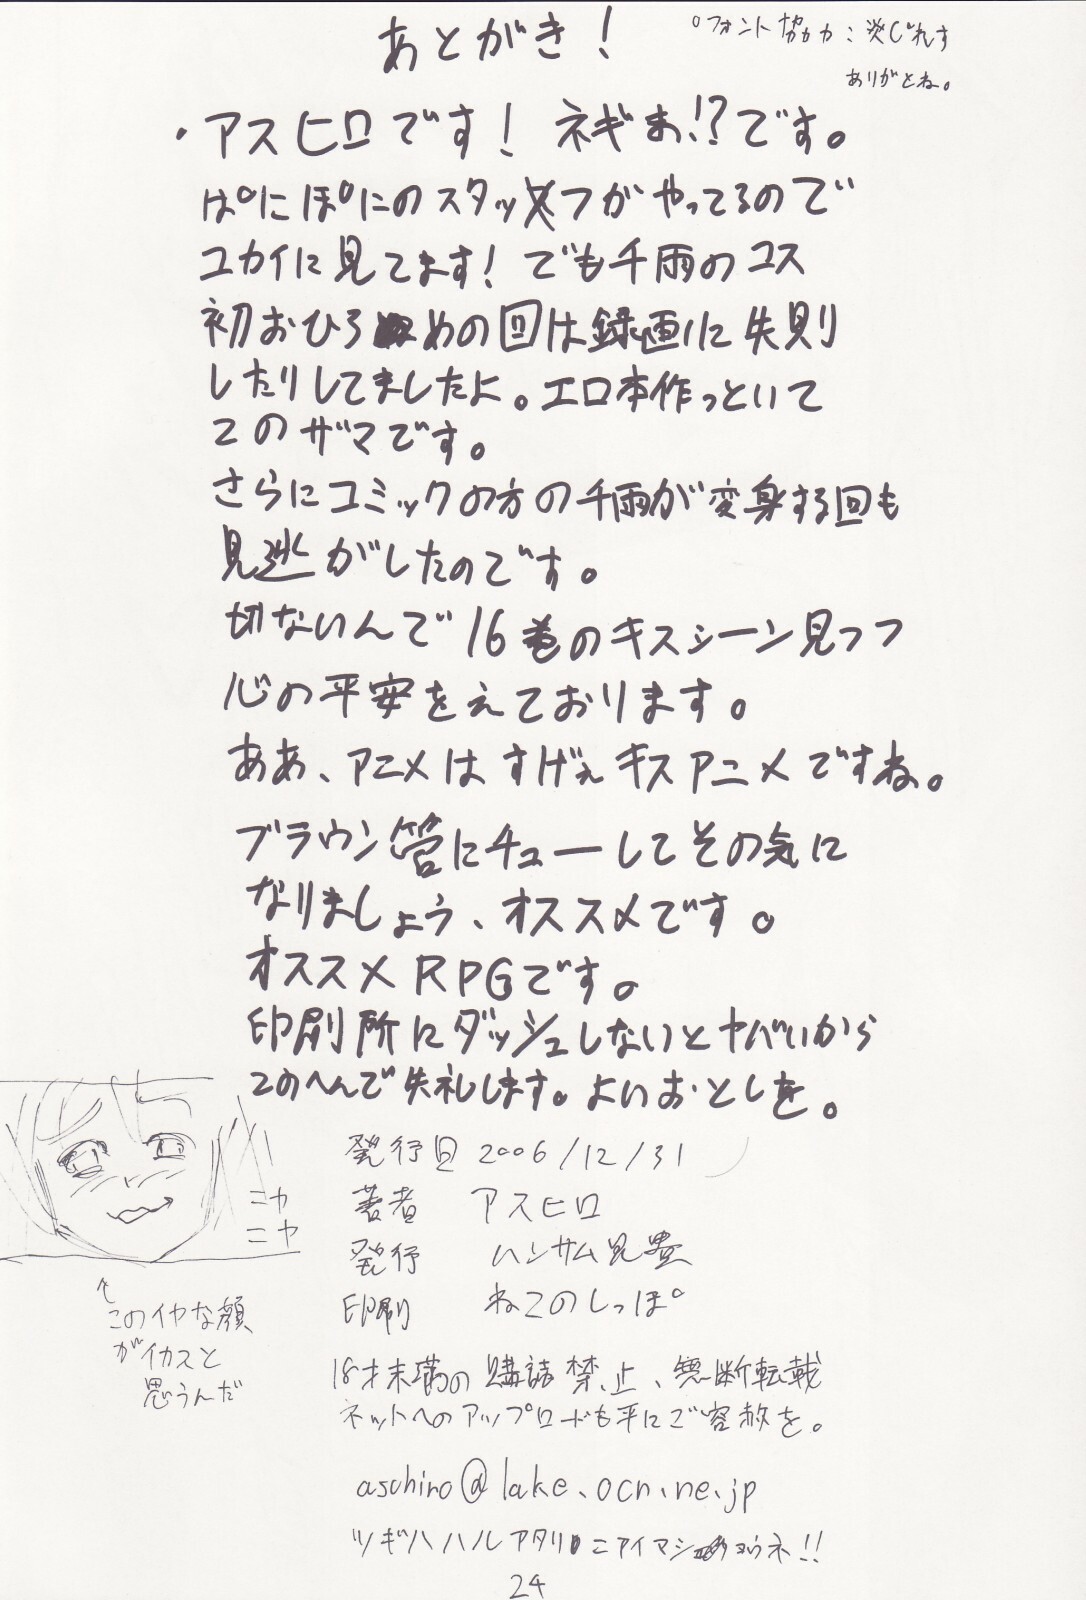 あとがき!
○フォント協力:炎じれす
ありがとね。
・アスヒロです! ネギま!?です。
ぱにぽにのスタッフがやってるので
ユカイに見てます! でも千雨のコス
初おひろめの回は録画に失則
したりしてましたよ。エロ本作っといて
このザマです。
さらにコミックの方の千雨が変身する回も
見逃がしたのです。
切ないんで16巻のキスシーン見つつ
心の平安をえております。
ああ、アニメはすげぇキスアニメですね。
ブラウン管にチューしてその気に
なりましょう、オススメです。
オススメRPGです。
印刷所にダッシュしないとヤバいから
このへんで失礼します。よいおとしを。
ニヤ
ニヤ
↑
このイヤな顔
がイカスと
思うんだ
発行日 2006/12/31
著者 アスヒロ
発行 ハンサム兄貴
印刷 ねこのしっぽ
18才未満の購読禁止、無断転載
ネットへのアップロードも平にご容赦を。
aschiro@lake.ocn.ne.jp
ツギハハルアタリニアイマショウネ!!
24